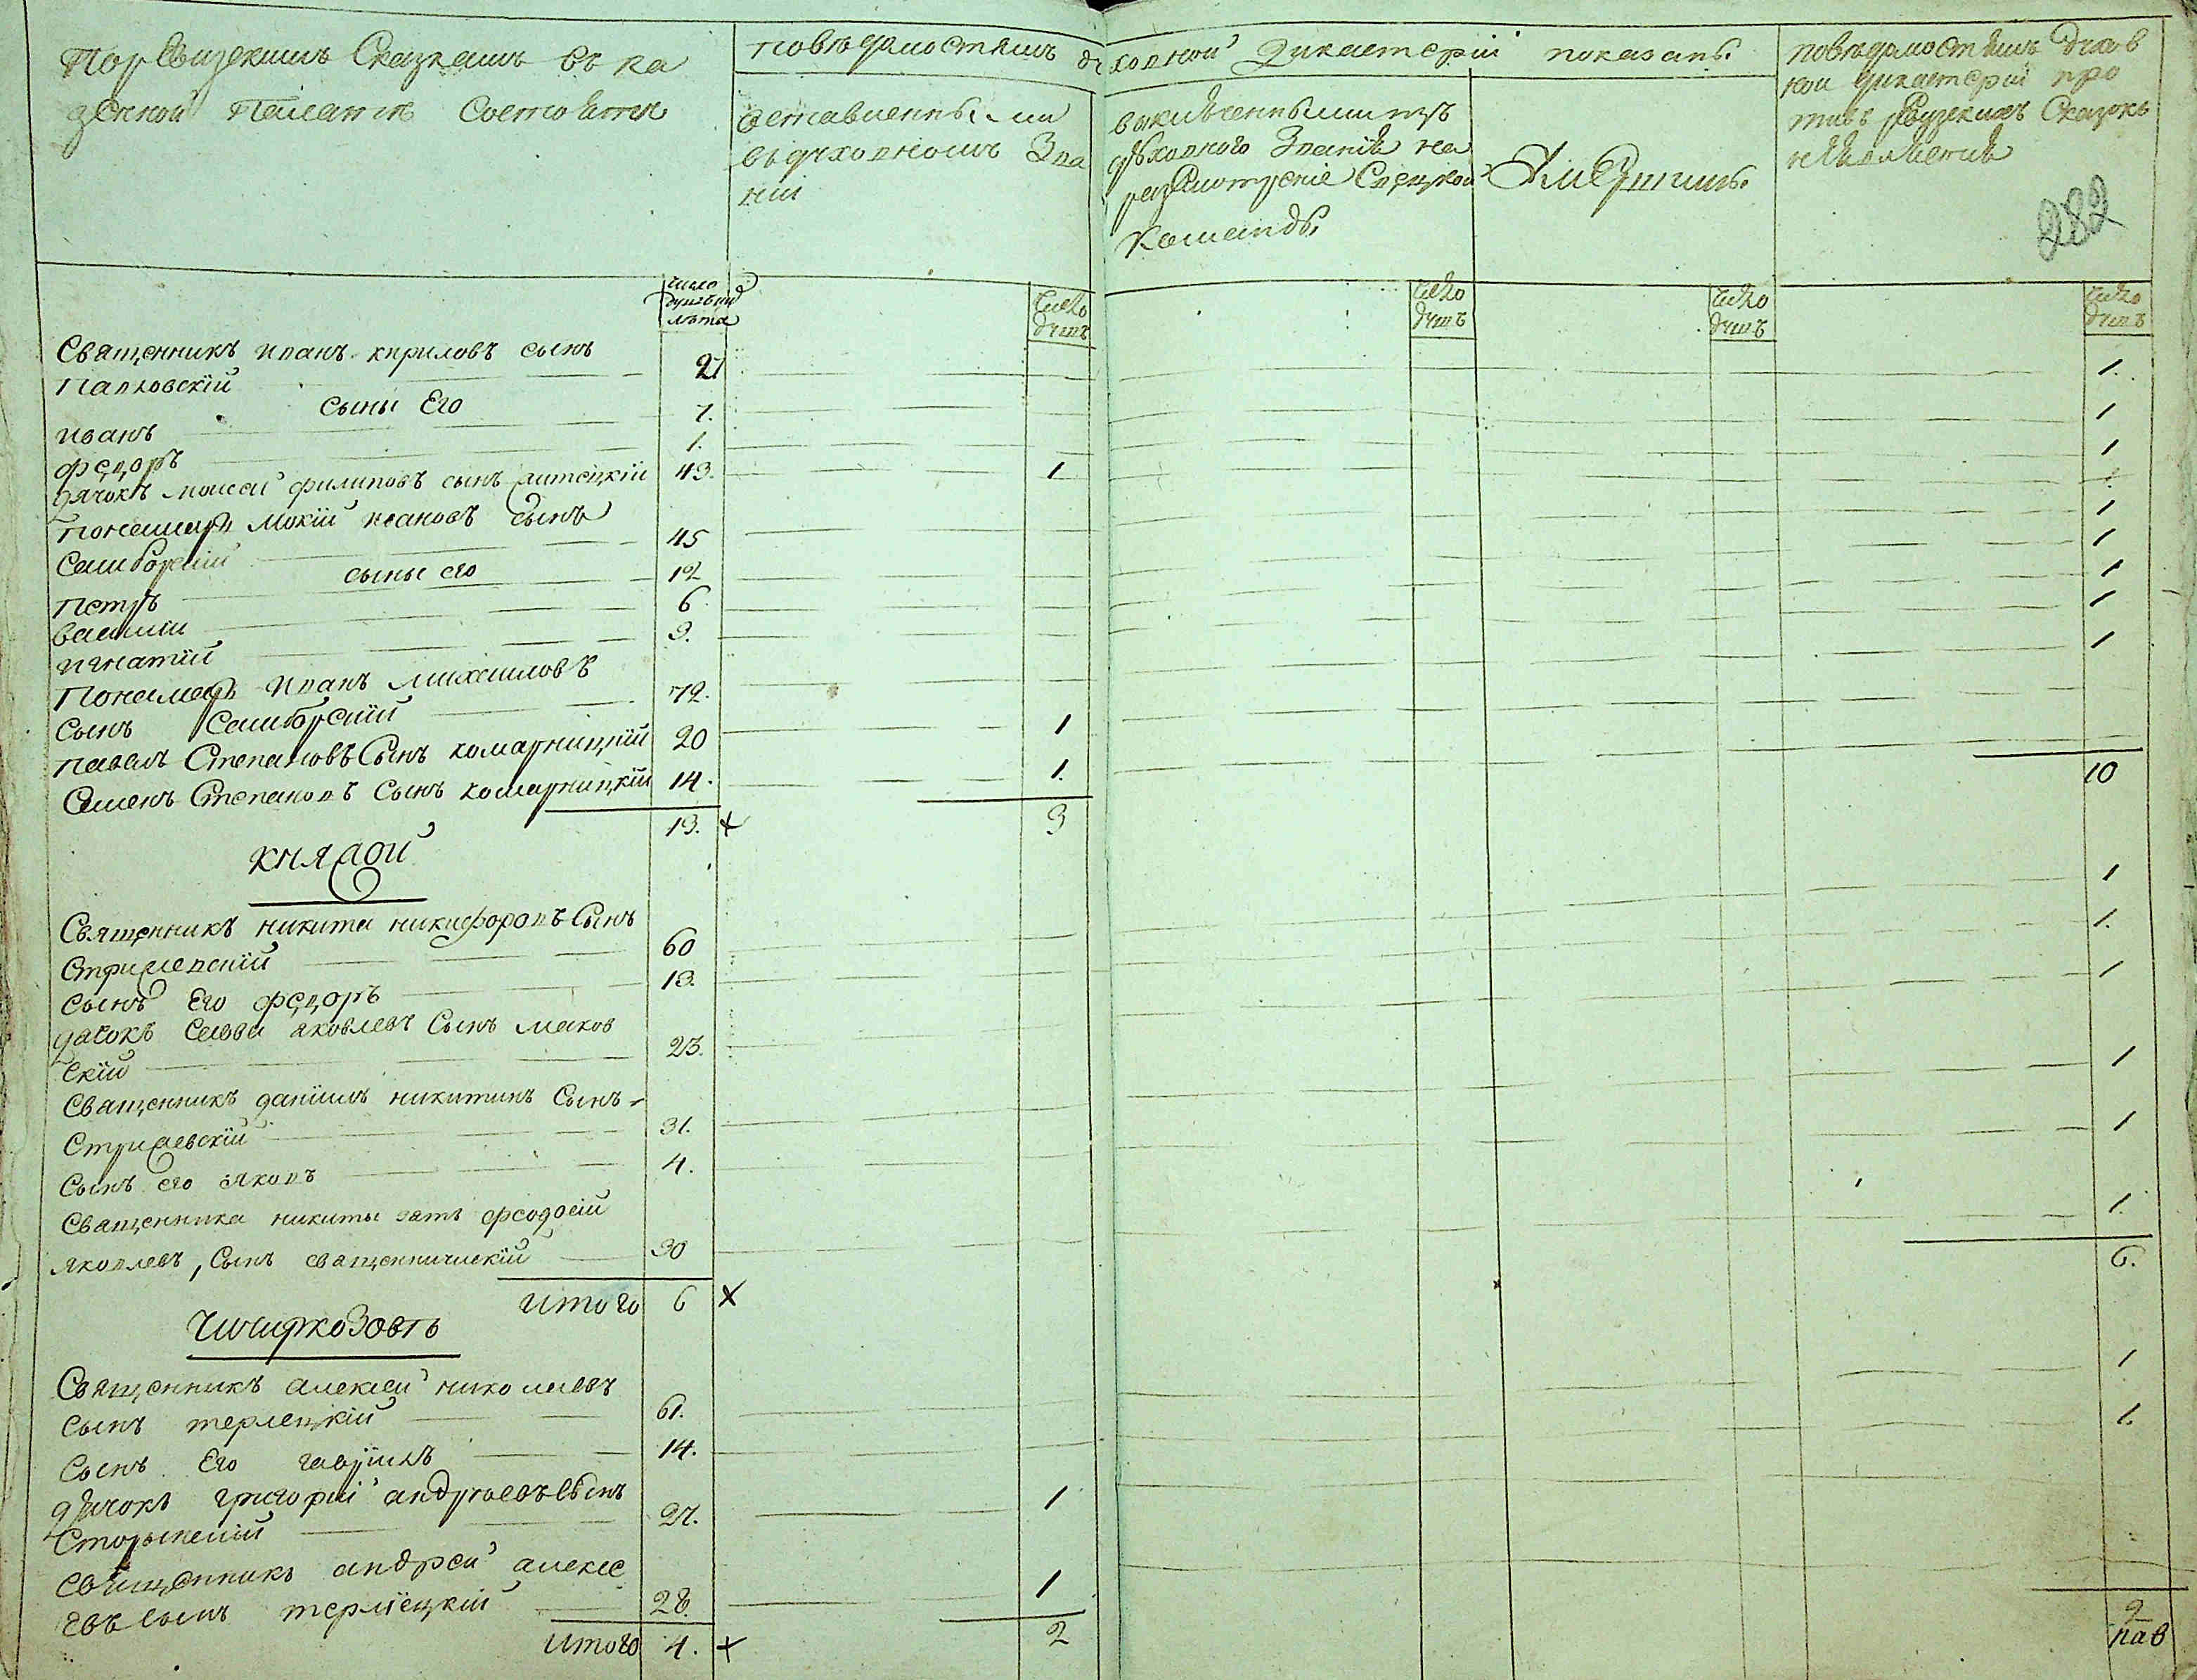 По Ревизскимъ Сказкамъ въ ка
зенной Палатѣ Состоятъ
По вѣдомостямъ духовной Дикастеріи показаны
оставленными
въ духовномъ Зва
ніи
выключенными изъ
духовного Званія на
разсмотреніе Свецкой
Команды
Умершими
по вѣдомостямъ духов
ной дикастеріи про
тивъ Ревизскихъ Сказокъ
не являтися
282
число
душъ и
лѣта
Число
душъ
Число
душъ
Число
душъ
Число
душъ
Священникъ иванъ кириловъ сынъ
Павловскій 27 1.
сыны Его
иванъ 7. 1
федоръ 1. 1
дячокъ моисей филиповъ сынъ 43. 1
Пономарь Мокій ивановъ сынъ
Самборскій 45 1
сыны его
Петръ 12 1
василій 6 1
игнатій 3. 1
Пономарь иванъ михаиловъ
сынъ Самборскій 72. 1
павелъ Степановъ Сынъ комарницкій 20 1
Семенъ Степановъ Сынъ комарницкій 14. 1.
13. × 3 10
КНЯЖОЙ
Священникъ никита никифоровъ Сынъ
Стрижевскій 60 1
сынъ Его федоръ 13. 1.
дячокъ Савва яковлевъ Сынъ маков
скій 23. 1
Священникъ даніилъ никитинъ Сынъ
Стрижевскій 31. 1
Сынъ его яковъ 4. 1
Священника никиты зять феодосій
яковлевъ, Сынъ священническій 30 1.
итого 6 × 6.
Чичиркозовъ
Священникъ алексей николаевъ
сынъ терлецкій 61. 1
Сынъ Его гавріилъ 14. 1.
дячокъ григорій андреевъ Сынъ
27. 1
священникъ андрей алексе
евъ сынъ терлецкій 28. 1
итого 4. × 2 2